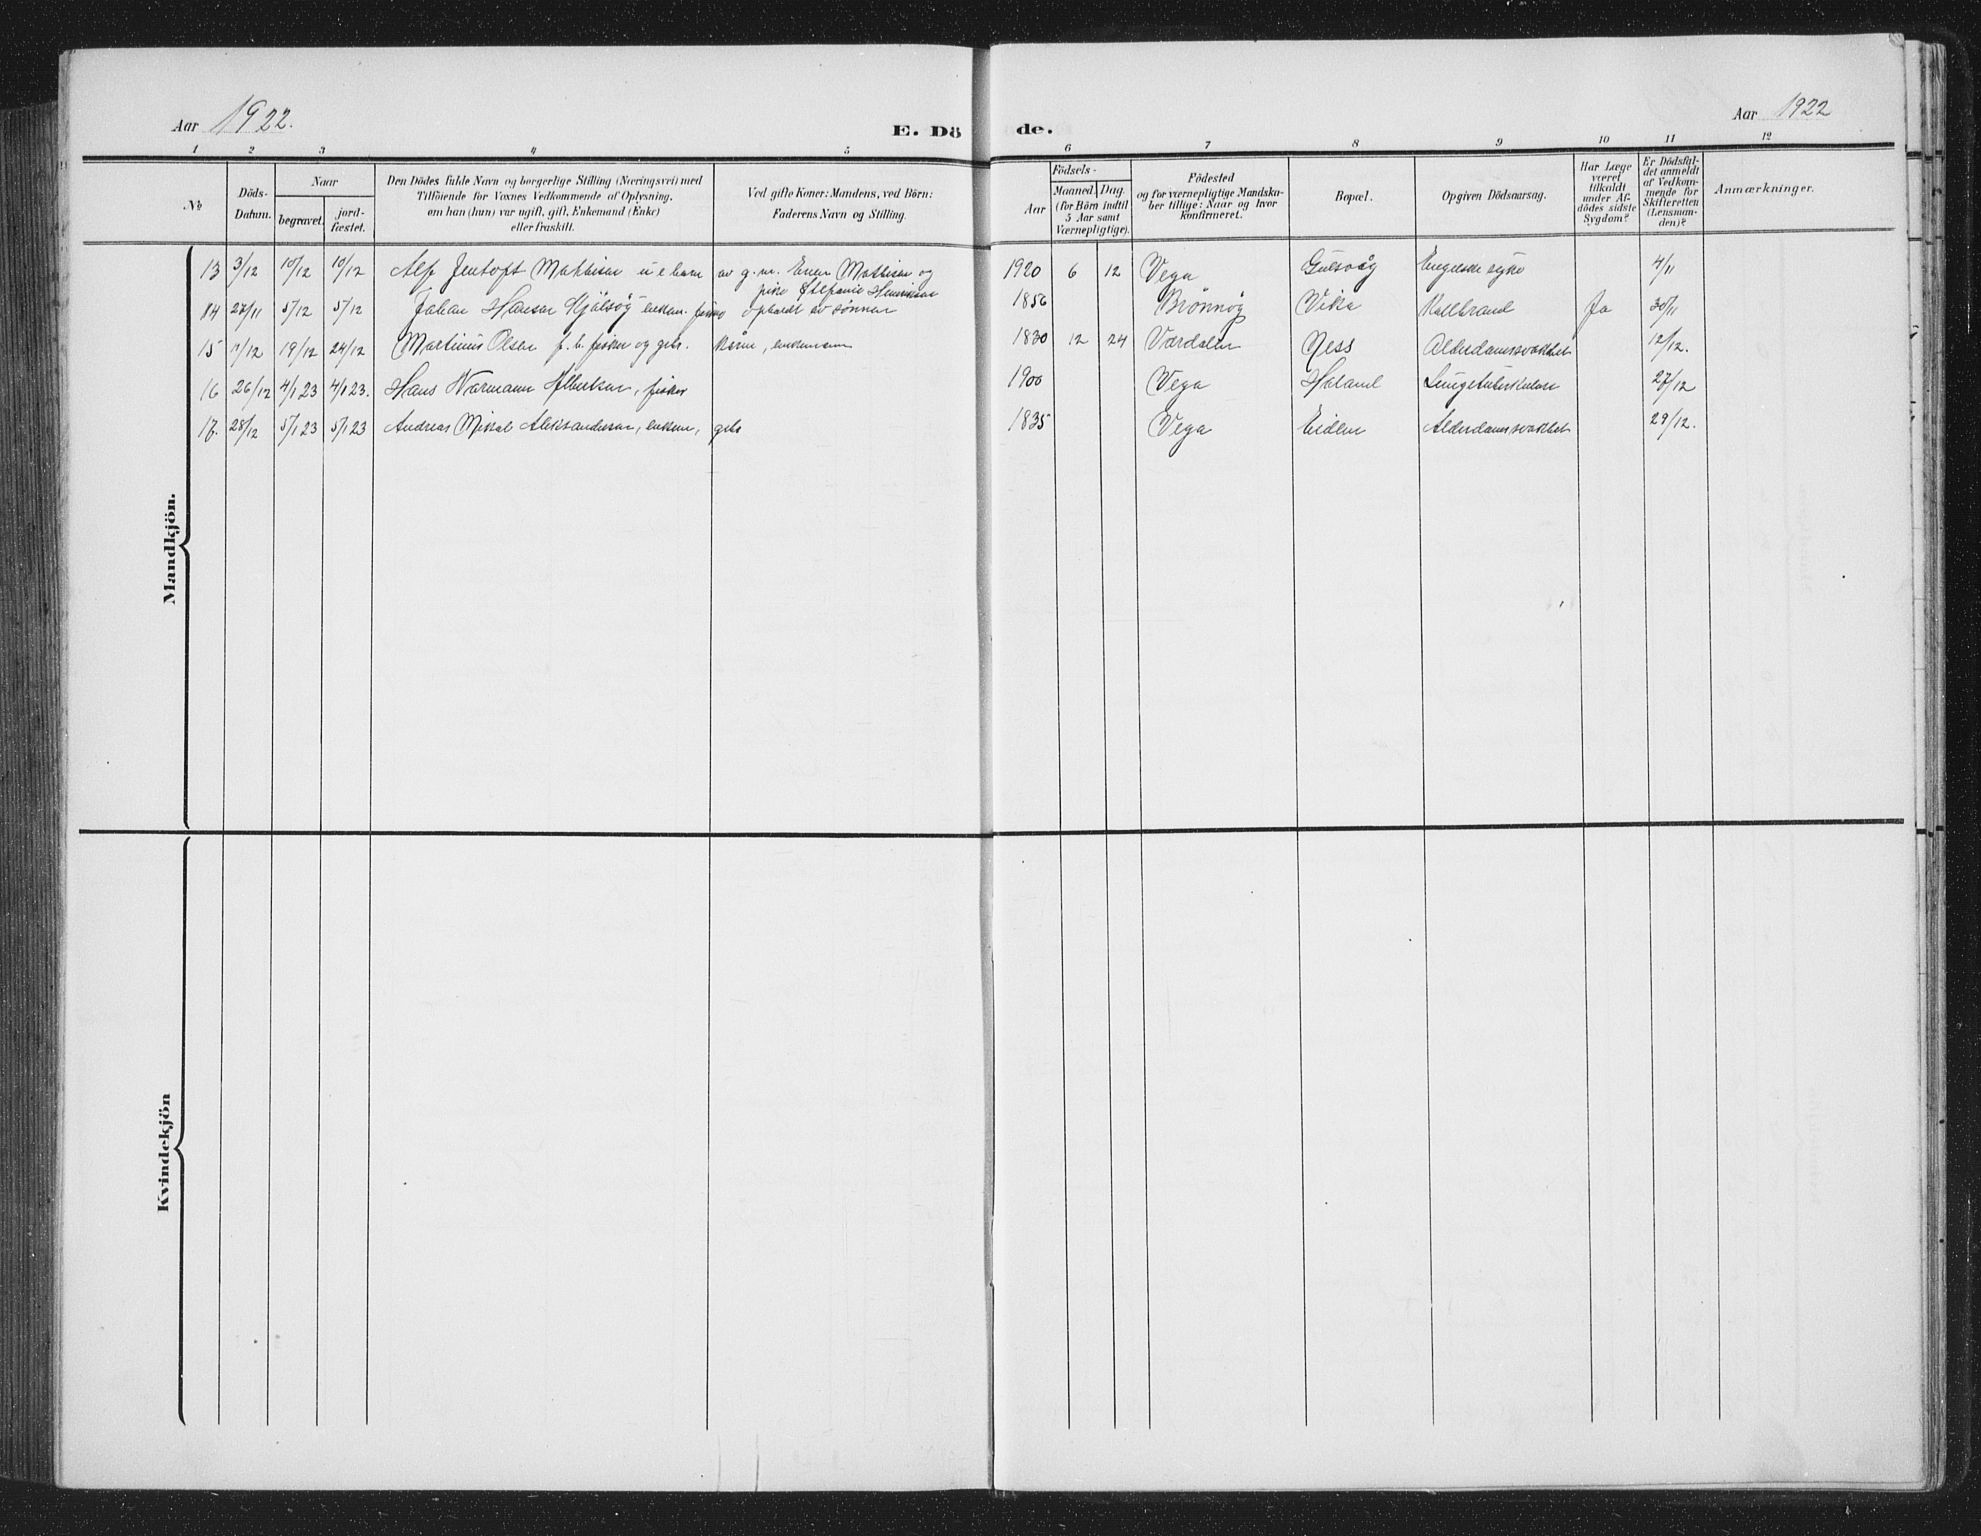 Aar 1922.
E. Dö de.
Aar 1922
1 2 3 4 5 6 7 8 9 10 11 12
No
Döds-Datum.
Naar
begravet.
jord-fæstet.
Den Dödes fulde Navn og borgerlige Stilling (Næringsvei) med
Tilföiende for Voxnes Vedkommende af Oplysning,
om han (hun) var ugift, gift, Enkemand (Enke)
eller fraskilt.
Ved gifte Koner: Mandens, ved Börn:
Faderens Navn og Stilling.
Födsels-
Aar
Maaned. Dag.
(for Börn indtil
5 Aar samt
Værnepligtige).
Födested
og for værnepligtige Mandska-
ber tillige: Naar og hvor
konfirmeret.
Bopæl.
Opgiven Dödsaarsag.
Har Læge
været
tilkaldt
under Af-
dödes sidste
Sygdom?
Er Dödsfal-
det anmeldt
af Vedkom-
mende for
Skifteretten
(Lensman-
den)?
Anmærkninger.
Mandkjön.
13 3/12 10/12 10/12 Alf Jentoft Mathisen u e barn av g.m. Mathisen og 1920 6 12 Vega Gulsvåg Engelske syke 4/11
pike Stefanie Henriksen
14 27/11 5/12 5/12 Johan Hansen enkem. fisker ophardt av sønnen 1856 Brönnöy Vika Kallbrand Ja 30/11
15 11/12 19/12 24/12 Martinus Olsen f. b. fisker og gbr. kårm, enkemann 1830 12 24 Værdalen Ness Alderdomssvakhet 12/12.
16 26/12 4/1 23 4/1 23. Hans Normann Albertsen, fisker 1900 Vega Holand Lungetuberkulose 27/12
17. 28/12 5/1 23 5/1 23 Andreas Mikal Aleksandersen, enkem, gbr 1835 Vega Eidem Alderdomssvakhet 29/12.
Kvindekjön